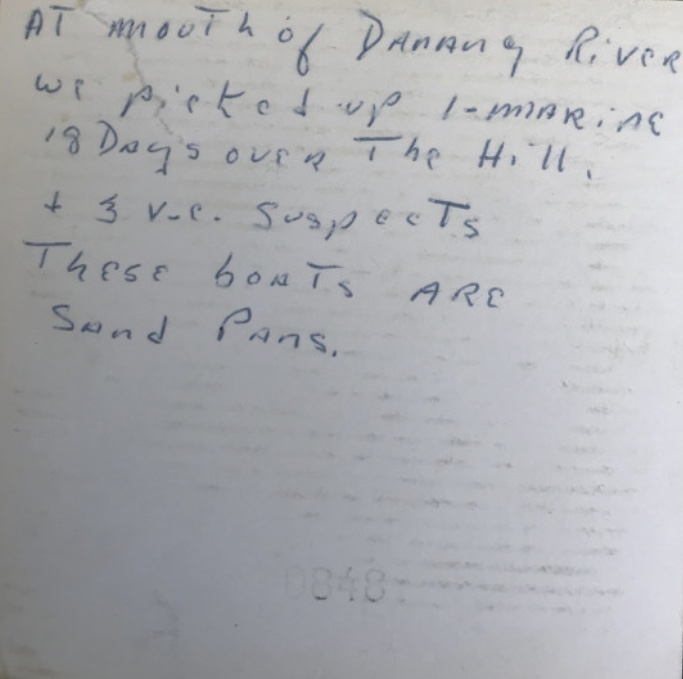 AT mouth of DANANG RivER
we picked up 1-mARiNE
18 DAYS ovER The Hill.
+ 3 v.c. SuspecTs
ThESE boATs ARE
SANd PANS.
0848